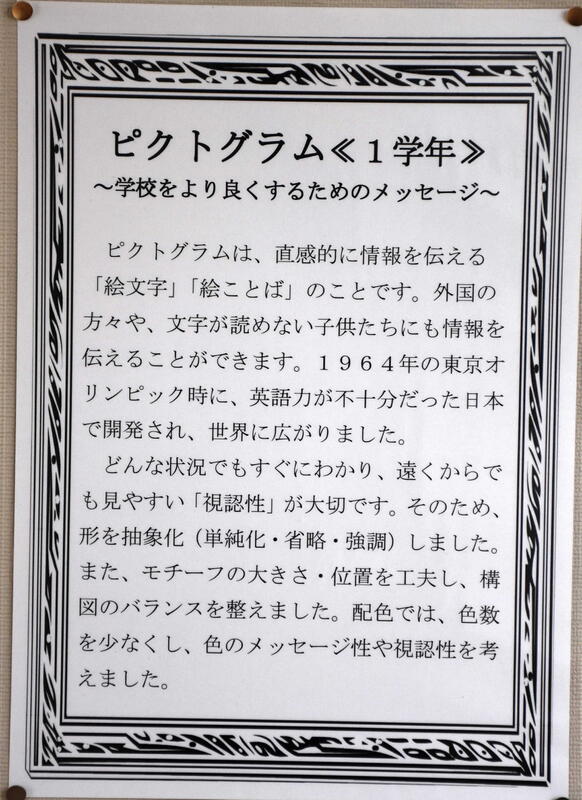 ピクトグラム≪１学年≫
～学校をより良くするためのメッセージ～
ピクトグラムは、直感的に情報を伝える
「絵文字」「絵ことば」のことです。外国の
方々や、文字が読めない子供たちにも情報を
伝えることができます。１９６４年の東京オ
リンピック時に、英語力が不十分だった日本
で開発され、世界に広がりました。
どんな状況でもすぐにわかり、遠くからで
も見やすい「視認性」が大切です。そのため、
形を抽象化（単純化・省略・強調）しました。
また、モチーフの大きさ・位置を工夫し、構
図のバランスを整えました。配色では、色数
を少なくし、色のメッセージ性や視認性を考
えました。